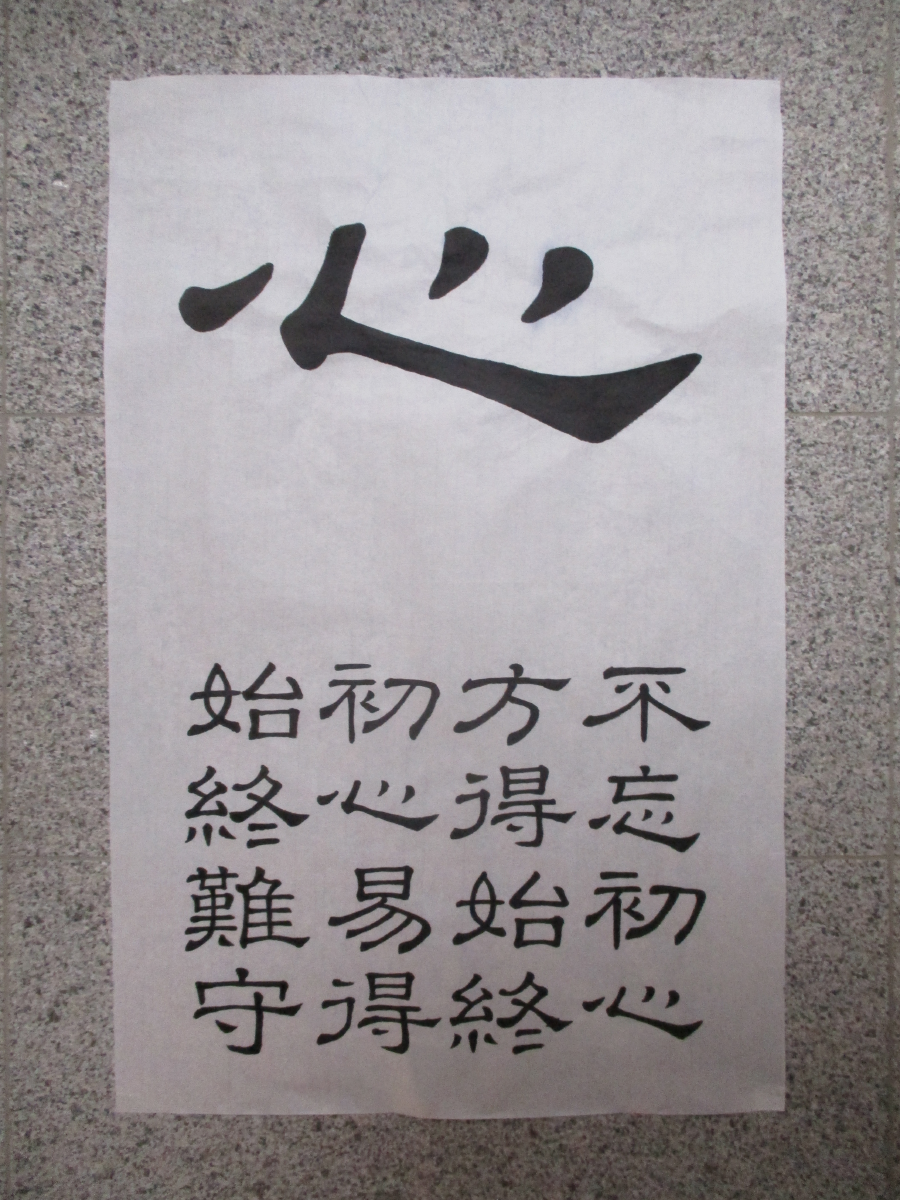 心
不忘初心
方得始終
初心易得
始終難守